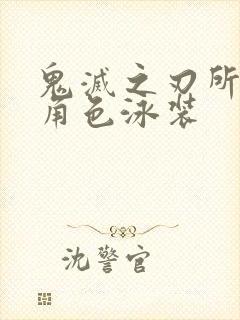 鬼滅之刃所
角色泳装
沈警官